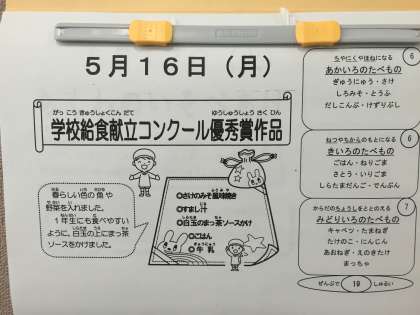 5月16日(月)
がっこうきゅうしょくこんだて ゆうしゅうしょうさくひん
学校給食献立コンクール優秀賞作品
春らしい色の魚や
野菜を入れました。
1年生にも食べやすい
ように、白玉の上にまっ茶
ソースをかけました。
◎さけのみそ風味焼き
◎すまし汁
◎白玉のまっ茶ソースかけ
◎ごはん
◎牛乳
ちやにくやほねになる
6
あかいろのたべもの
ぎゅうにゅう・さけ
しろみそ・とうふ
だしこんぶ・けずりぶし
ねつやちからのもとになる
6
きいろのたべもの
ごはん・ねりごま
さとう・いりごま
しらたまだんご・でんぷん
からだのちょうしをととのえる
7
みどりいろのたべもの
キャベツ・たまねぎ
たけのこ・にんじん
あおねぎ・えのきたけ
まっちゃ
ぜんぶで 19 しゅるい